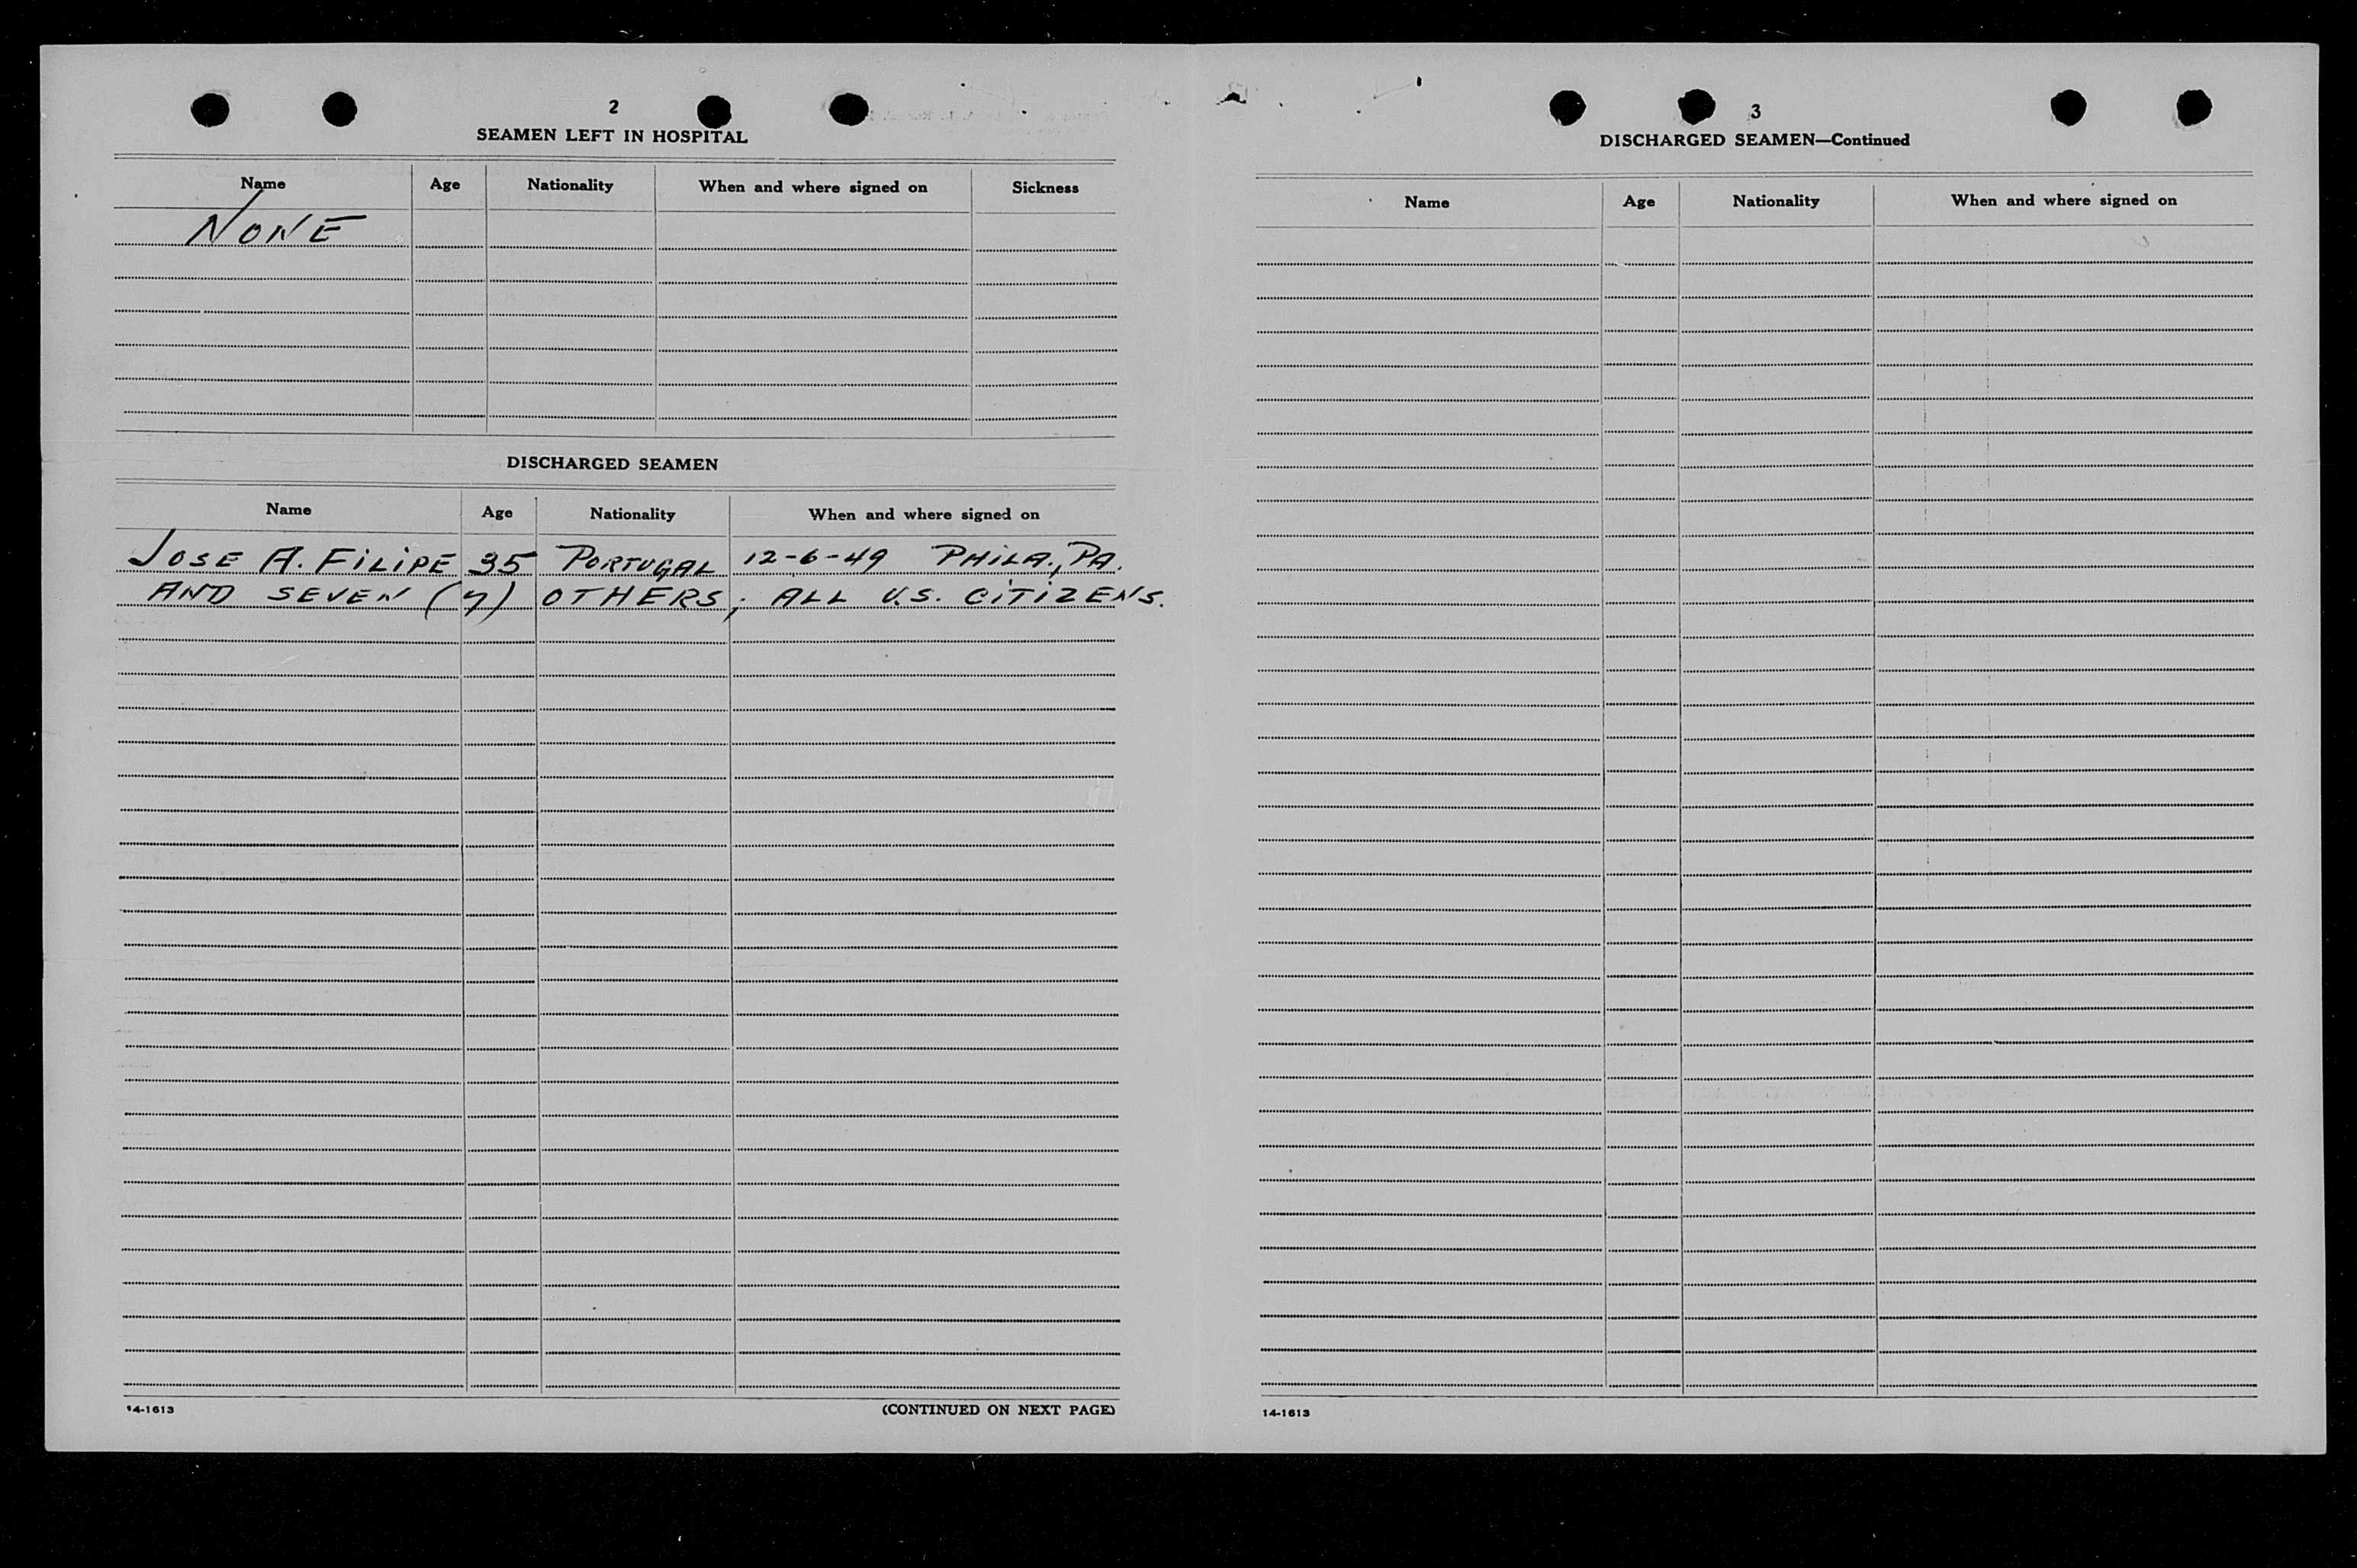 2
SEAMEN LEFT IN HOSPITAL
Name Age Nationality When and where signed on Sickness
NONE
DISCHARGED SEAMEN
Name Age Nationality When and where signed on
JOSE A. FILIPE 35 PORTUGAL 12-6-49 PHILA., PA.
AND SEVEN (7) OTHERS; ALL U.S. CITIZENS.
14-1613 (CONTINUED ON NEXT PAGE)
3
DISCHARGED SEAMEN—Continued
Name Age Nationality When and where signed on
14-1613